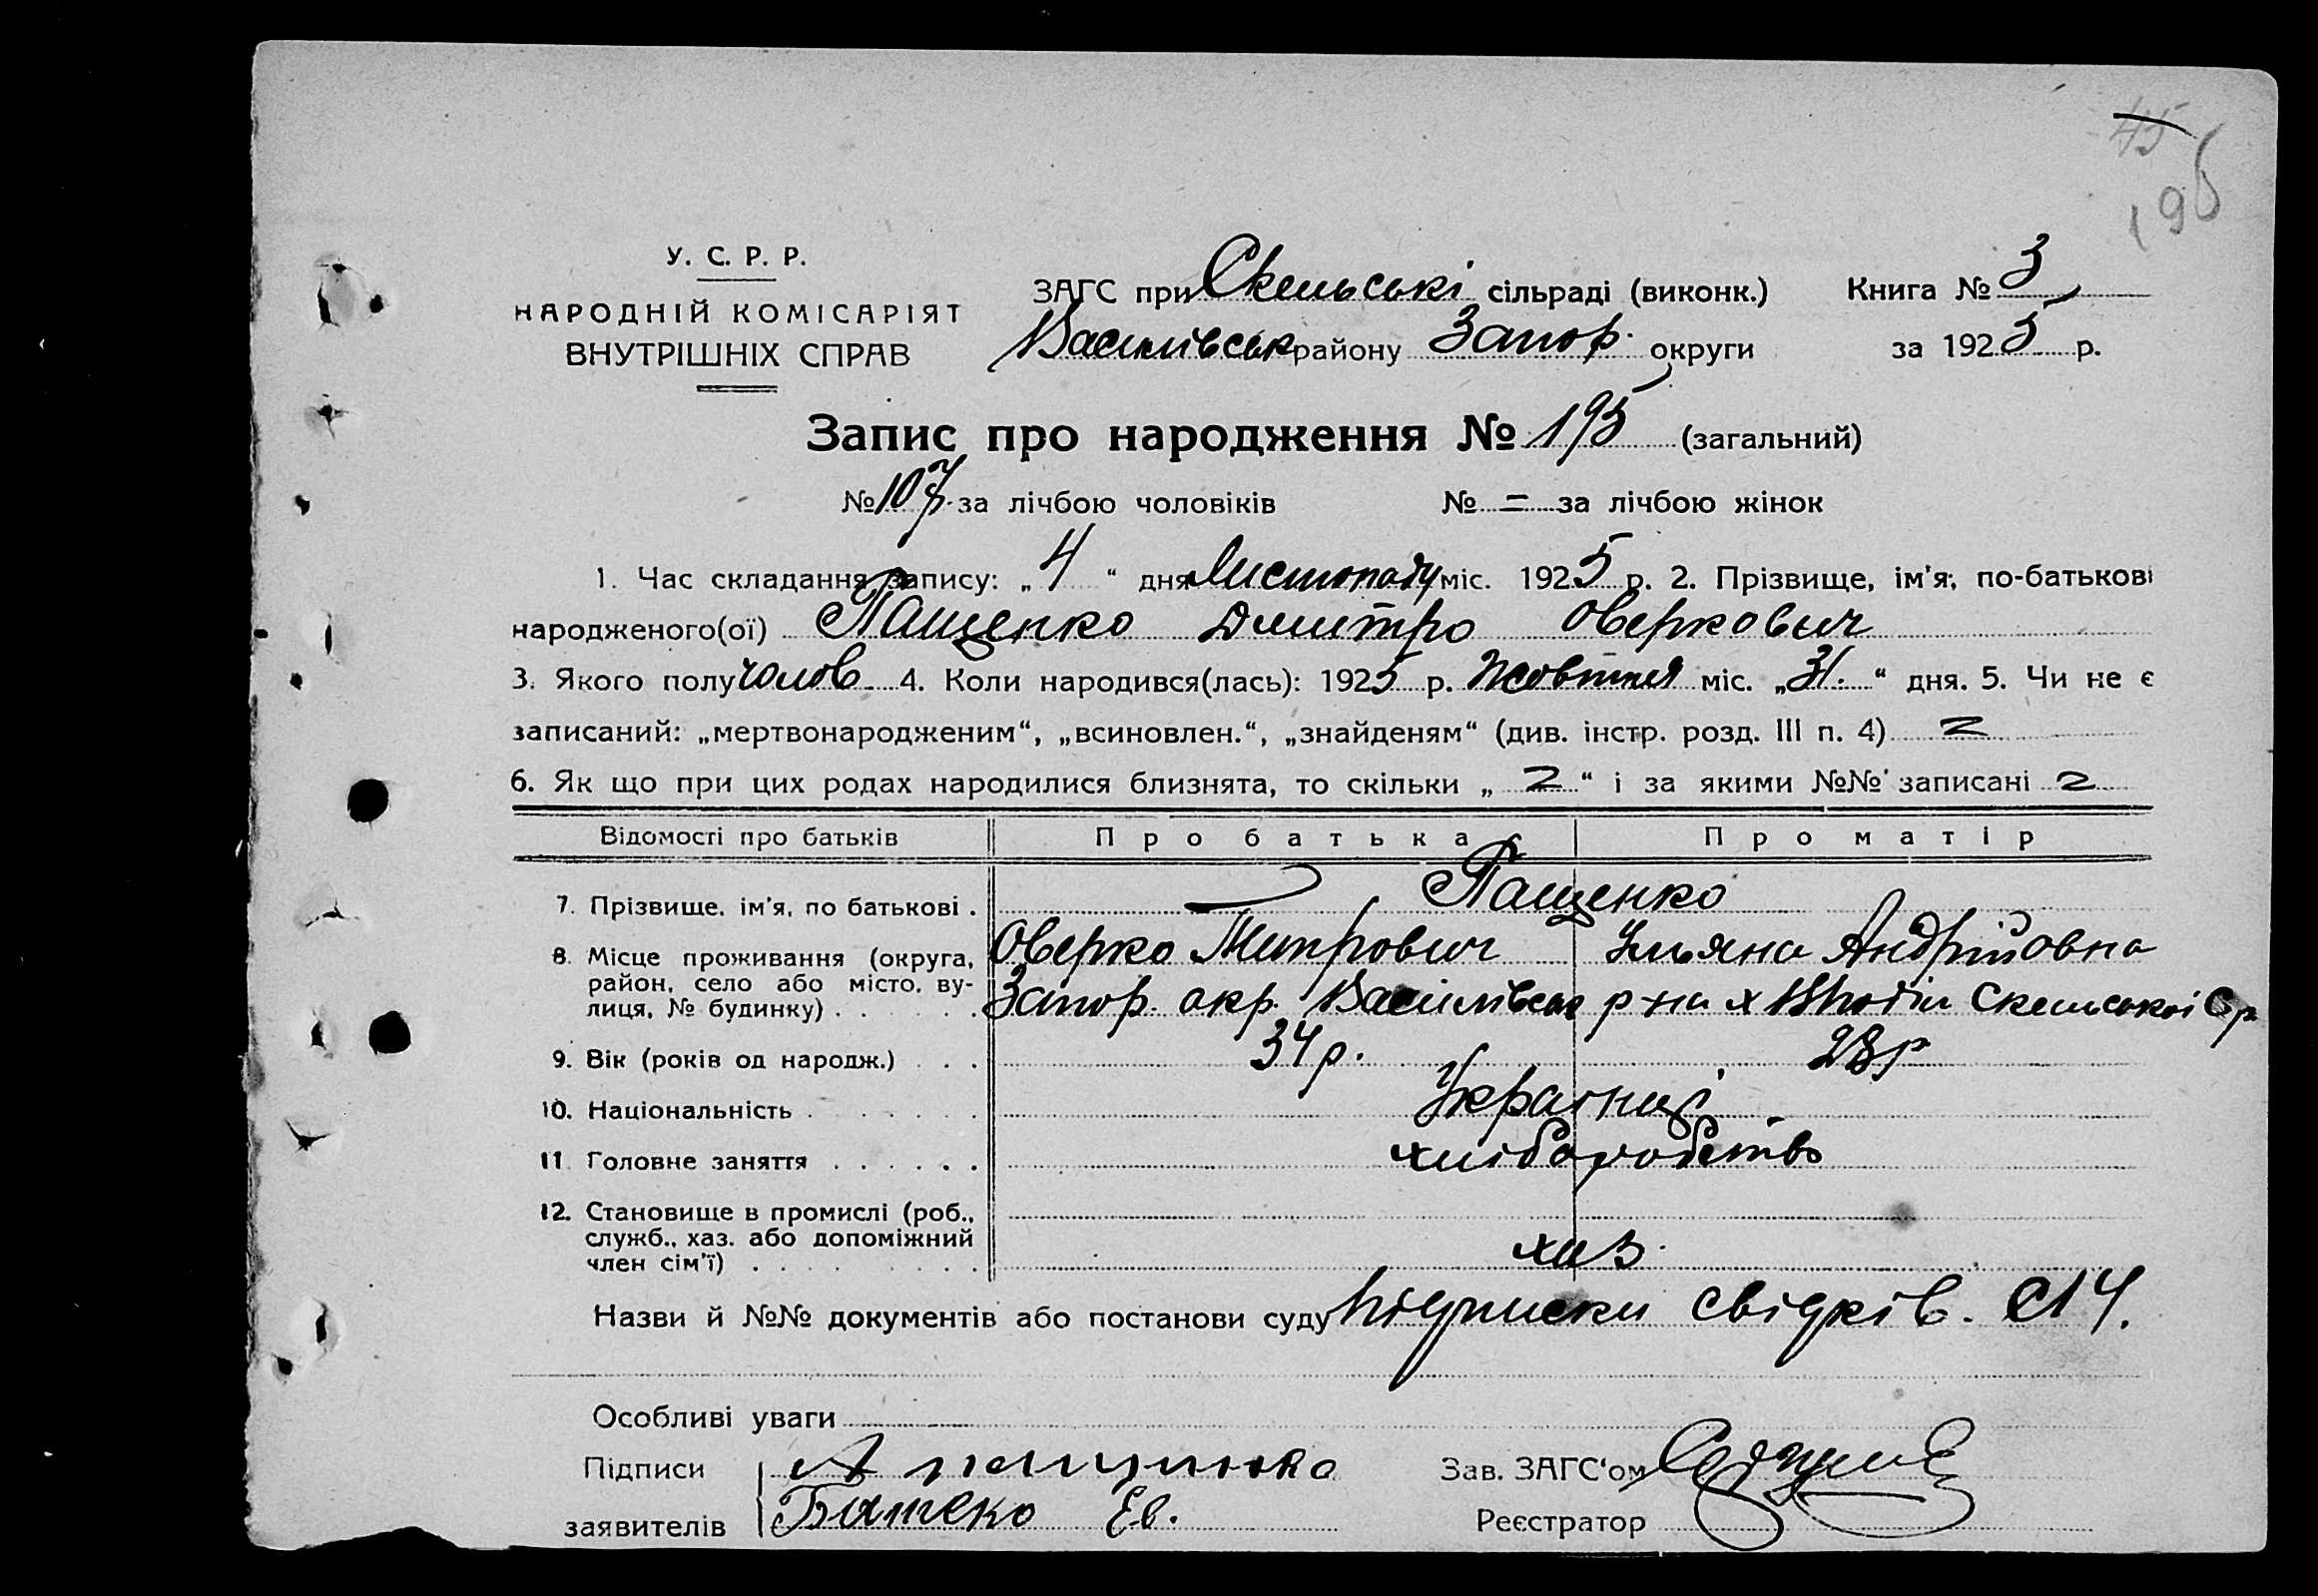 45
196
У. С. Р. Р.
НАРОДНІЙ КОМІСАРІЯТ
ВНУТРІШНІХ СПРАВ
ЗАГС при Скельські сільраді (виконк.) Книга № 3
Василівськ району Запор. округи за 1925 р.
Запис про народження № 195 (загальний)
№ 107 за лічбою чоловіків № = за лічбою жінок
1. Час складання запису: „4“ дня Листопаду міс. 1925 р. 2. Прізвище, ім'я, по-батькові
народженого(ої) Пащенко Дмитро Оверкович
3. Якого полу чолов. 4. Коли народився(лась): 1925 р. Жовтня міс. „31.“ дня. 5. Чи не є
записаний: „мертвонародженим“, „всиновлен.“, „знайденям“ (див. інстр. розд. III п. 4)
6. Як що при цих родах народилися близнята, то скільки „ “ і за якими №№ записані
Відомості про батьків Про батька Про матір
7. Прізвище, ім'я, по батькові . Пащенко
Оверко Митрович Ульяна Андрійовна
8. Місце проживання (округа, район, село або місто, вулиця, № будинку) . . . . . . Запор. окр. Василівськ р-на х Скельської С р
9. Вік (років од народж.) . . . 34 р. 28 р
10. Національність . . . . . . Українці
11. Головне заняття . . . . . . хліборобство
12. Становище в промислі (роб., служб., хаз. або допоміжний член сім'ї) . . . . . . . . . хаз.
Назви й №№ документів або постанови суду Підписки свідків. 14.
Особливі уваги
Підписи А Зав. ЗАГС'ом
заявителів Ев. Реєстратор